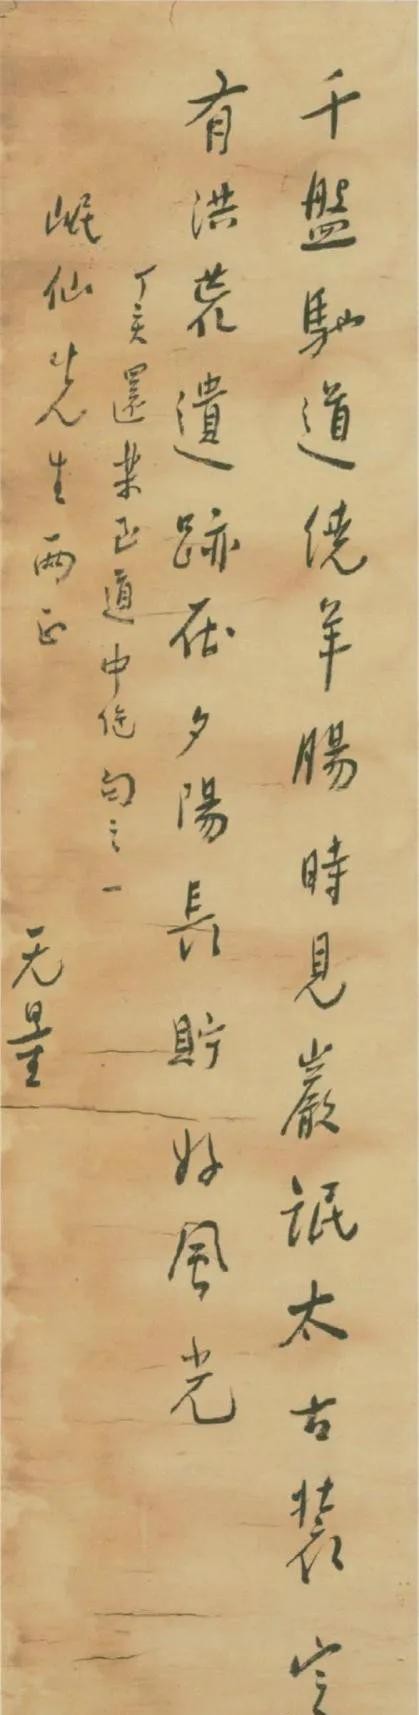 千盤馳道繞羊腸時見巖氓太古裝定
有洪荒遺跡在夕陽長貯好風光
丁亥還道中作句之一
岷仙先生兩正
无量